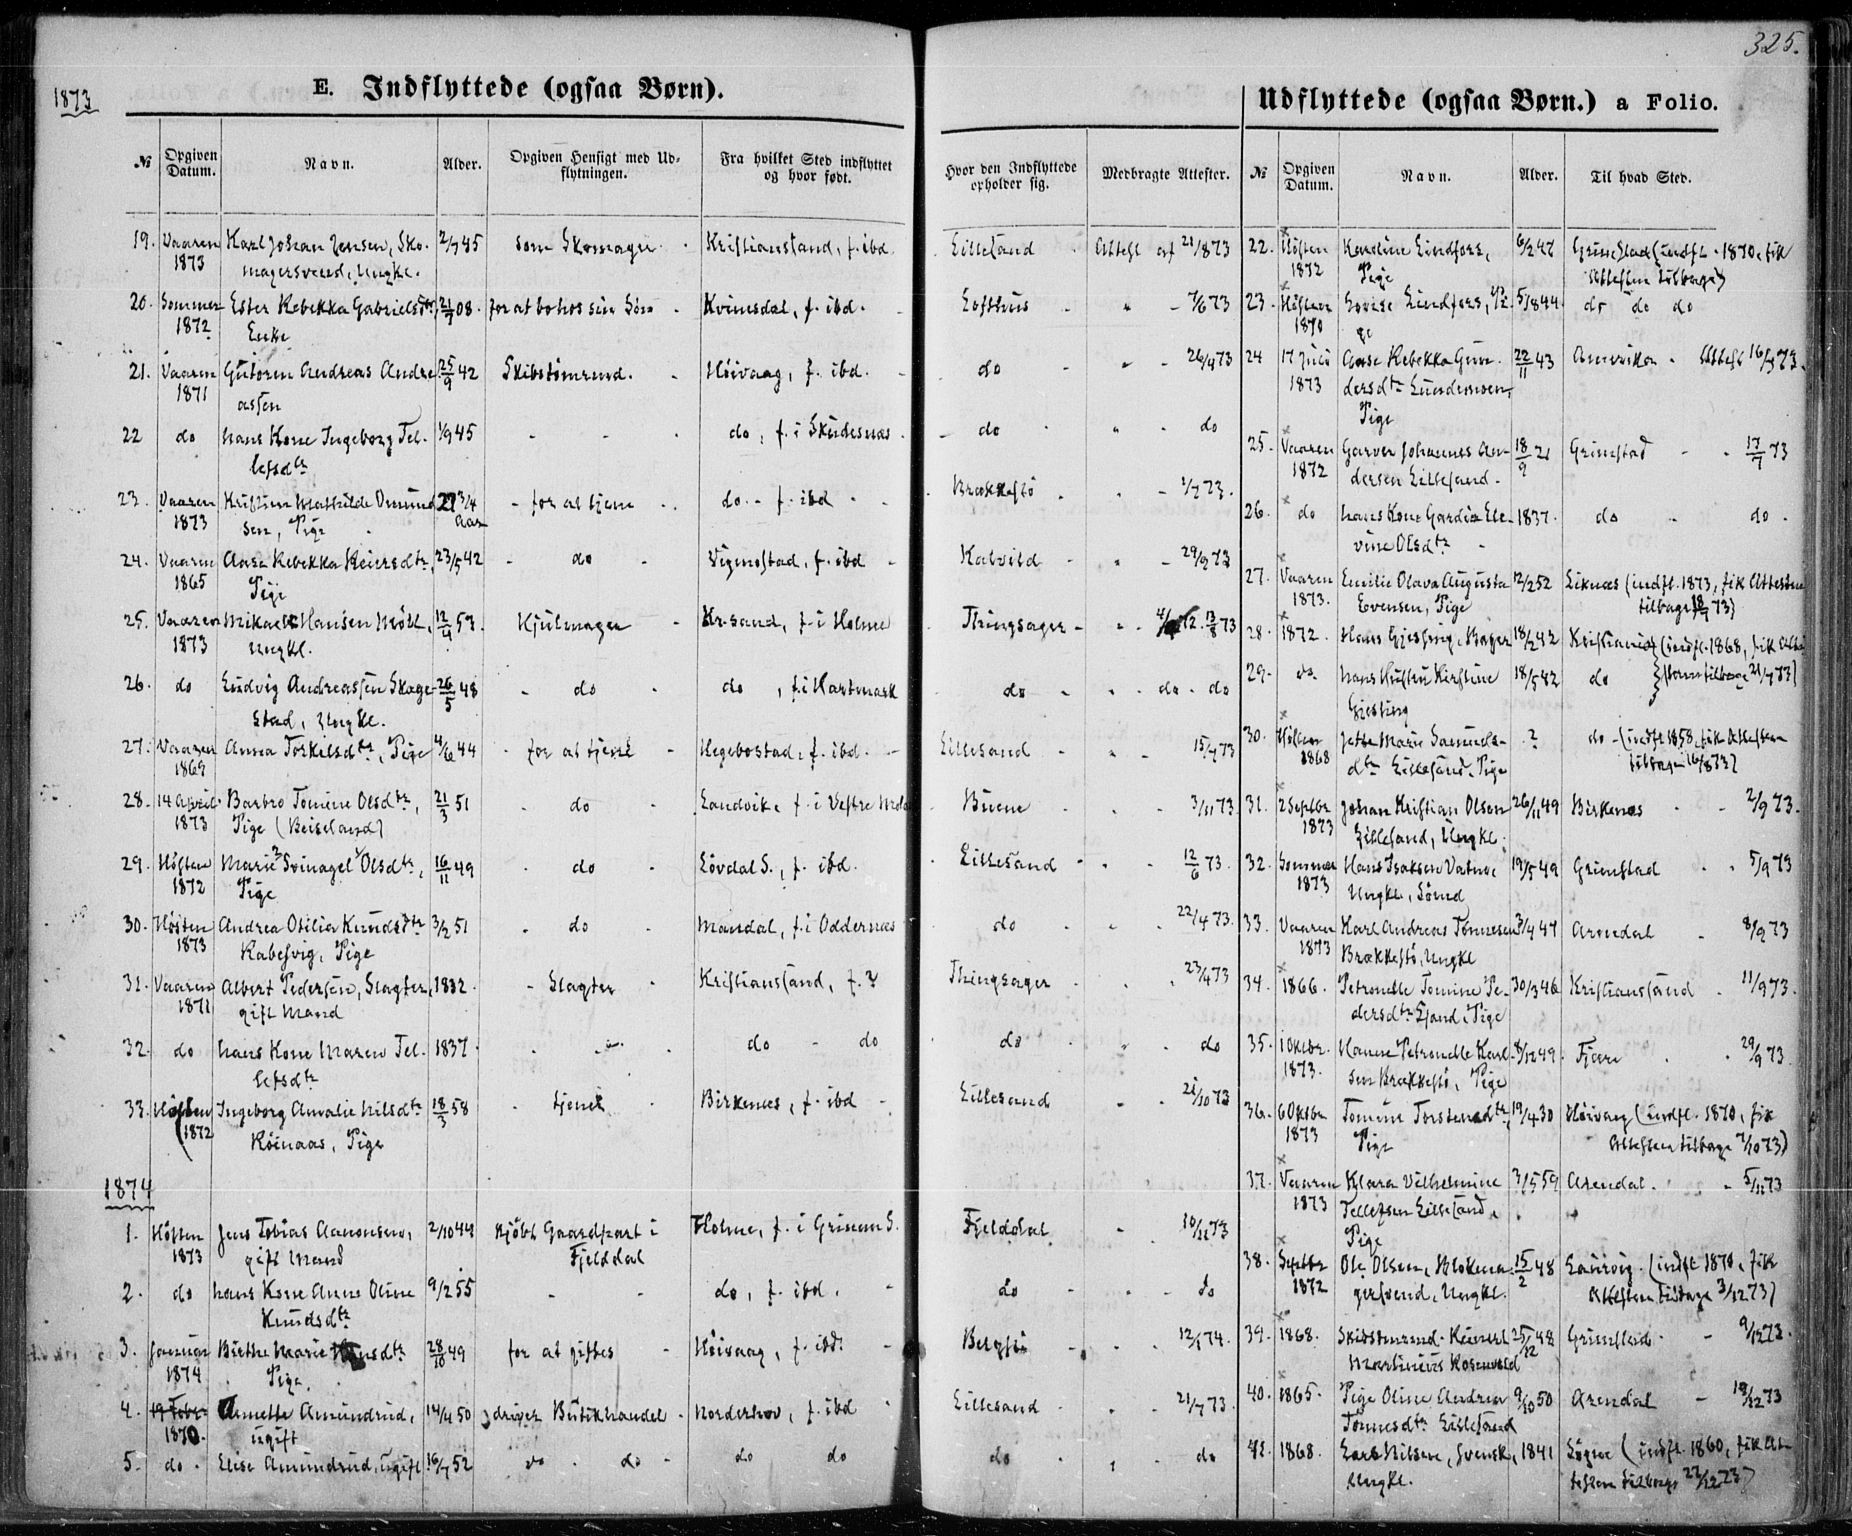 325.
1873
E. Indflyttede (ogsaa Børn).
№ Opgiven Datum. Navn. Alder. Opgiven Hensigt med Udflytningen. Fra hvilket Sted indflyttet og hvor født. Hvor den Indflyttede opholder sig. Medbragte Attester.
19. Vaaren Karl Johan Jensen, Sko- 2/7 45 som Skomager Kristianssand, f. ibd. Lillesand Attest af 21/8 73
1873 magersvend, Ungkl.
20. Sommer Ester Rebekka Gabrielsdtr 21/7 08. for at bo hos sin Søn Kvinesdal, f. ibd. Lofthus 7/6 73
1872 Enke
21. Vaaren Gutorm Andreas Andre- 25/9 42 Skibstømmrmd. Höivaag, f. ibd. do 26/4 73
1871 assen
22 do hans Kone Ingeborg Tel- 1/9 45 do, f. i Skudesnæs do do
lefsdtr
23. Vaaren Kristine Mathilde Omund- 27 3/4 for at tjene do. f. ibd Brækkestö 1/7 73.
1873 sen, Pige Aar
24. Vaaren Aasa Rebekka Reiersdtr, 23/5 42 do Vigmostad, f. ibd Kalvild 29/9 73
1865 Pige
25. Vaaren Mikael Hansen Möll, 12/4 53. Hjulmager Kr.sand, f. i Holme Thingsager 13/8 73
1873 Ungkl.
26. do Ludvig Andreassen Skage- 26/5 48 do do, f. i Hartmark do do do
stad, Ungkl.
27. Vaaren Anna Torkelsdtr, Pige 4/6 44 for at tjene Hegebostad, f. ibd. Lillesand 15/7 73
1869
28. 14 April Barbro Tomine Olsdtr, 21/3 51 do Landvik, f. i Vestre Mola Buene 3/11 73.
1873 Pige (Beiseland)
29. Hösten Marie Svinagel Olsdtr, 16/11 49 do Lövdal S., f. ibd. Lillesand 12/6 73.
1872 Pige
30. Hösten Andrea Otilia Knudsdtr 3/2 51 do Mandal, f. i Oddernæs do 22/4 73.
1873 Kabesvig, Pige
31. Vaaren Albert Pedersen, Slagter, 1832. Slagter Kristianssand, f. ? Thingsager 23/4 73
1871 gift Mand
32. do hans Kone Maren Tel- 1837. do do do do
lefsdtr
33. Hösten Ingeborg Amalie Nilsdtr 18/3 58 tjene Birkenes, f. ibd Lillesand 21/10 73
1872 Röinaas, Pige
1874
1. Hösten Jens Tobias Aanonsen, 2/10 44 kjöbt Gaardpart i Holme, f. i Grinem S. Fjelddal 10/11 73
1873 gift Mand Fjelddal
2. do hans Kone Anne Oline 9/2 55 do, f. ibd. do do
Knudsdtr
3. Januar Birthe Marie 28/10 49 for at giftes Höivaag, f. ibd. Bergstö 12/1 74.
1874 Pige.
4. 19 Febr. Annette Amundrud, 14/4 50 driver Butikhandel Norderhov, f. ibd Lillesand 21/7 73.
1870. ugift
5. do. Elise Amundrud, ugift 16/7 52 do do do do do
Udflyttede (ogsaa Børn.) a Folio.
№ Opgiven Datum. Navn. Alder. Til hvad Sted.
22. Hösten Karoline Lindfors, 6/2 47 Grimstad (indfl. 1870, fik
1872 Pige Attesten tilbage)
23. Hösten Lovise Lindfors, Pi- 5/8 44 do do do
1870 ge
24 17 Juli Aase Rebekka Gun- 22/11 43 Amerika. Attest 16/7 73.
1873 dersdtr Lundemoen,
Pige
25. Vaaren Garver Johannes An- 18/9 21 Grimstad 17/7 73
1872 dersen Lillesand.
26. do hans Kone Gardia Ele- 1837. do do.
vine Olsdtr
27. Vaaren Emilie Olava Augusta 12/2 52 Liknæs (indfl. 1873, fik Attesten
1873. Evensen, Pige tilbage 18/7 73)
28. 1872. Hans Gjessing, Bager 18/2 42 Kristiania (indfl. 1868, fik Atte-
29. do. hans Hustru Kirstine 18/5 42 do sterne tilbage 21/7 73)
Gjessing
30. Hösten Jette Marie Samuels- ? do (indfl. 1858, fik Attesten
1868 dtr Lillesand, Pige tilbage 16/8 73)
31. 2 Septbr Johan Kristian Olsen 26/11 49 Birkenæs 2/9 73.
1873 Lillesand, Ungkl.
32. Sommer Hans Isaksen Vatne, 19/5 49 Grimstad 5/9 73
1873 Ungkl., Sömd
33. Vaaren Karl Andreas Tönnesen 3/4 47 Arendal 8/9 73
1873 Brækkestö, Ungkl
34. 1866. Petronelle Tomine Pe- 30/3 46 Kristianssand 11/9 73.
dersdtr Eʃand, Pige
35. 1 Oktbr. Hanne Petronelle Karl- 8/12 49. Fjære 29/9 73
1873. sen Brækkestö, Pige
36. 6 Oktbr Tomine Torstensdtr, 19/4 30 Höivaag (indfl. 1870, fik
1873 Pige Attesten tilbage 7/10 73)
37. Vaaren Klara Vilhelmine 3/5 59 Arendal. 5/11 73
1873 Tellefsen Lillesand,
Pige
38. Septbr Ole Olsen, Blokma- 15/2 48 Laurvig. (indfl. 1870, fik
1872 gersvend, Ungkl. Attesten tilbage 3/12 73)
39. 1868. Skibstømrmd. Reinert 25/12 48 Grimstad 9/12 73.
Martinius Rosenvold
40. 1865. Pige Oline Andrea 9/10 50 Arendal 19/12 73
Tönnesdtr Lillesand
41. 1868. Lars Nilsen, Svensk, 1841 Søgne (indfl. 1860, fik At-
Ungkl. testen tilbage 22/12 73)